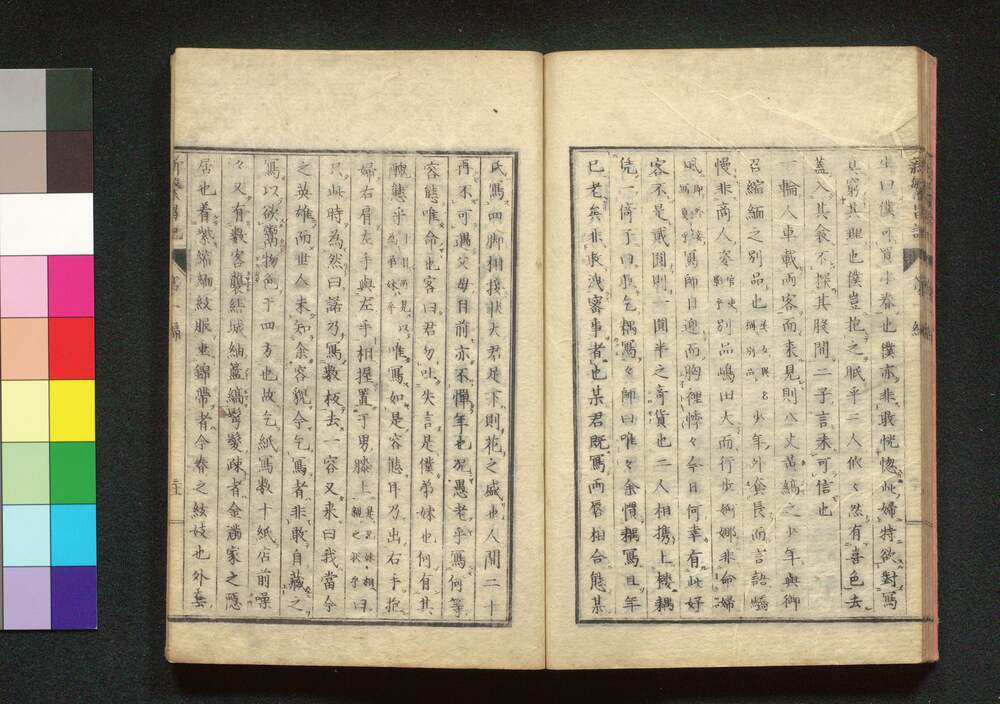 生曰僕可買小春也僕亦非敢恍惚此婦特欲對寫
其窮其理也僕豈抱之眠乎二人欣々然有喜色去
蓋入其衾不探其股間二子言未可信也
一輪人車載兩客而来見則八丈黄縞之少年與御
召縮緬之別品也少年外套長而言語驕
慢非商人姿別品嶋田大而行步婀娜非命婦
風寫師目迎而胸裡悸々今日何幸有此好
客不是貳圓則一圓半之奇貨也二人相携上樓耦
倚一倚子曰乞耦寫々師曰唯々余慣耦寫且年
已老矣非敢洩審事者也某君既寫兩唇相合態某
氏寫四脚相撲狀大君足下則花之盛也人間二十
再不可遇父母目前亦不憚年也况愚老乎寫何等
容態唯命也客曰君勿吐失言是僕弟妹也何有其
醜態乎以唯寫如是容態耳乃出右手抱
婦右肩左手與左手相握置于男膝上曰
只此時為然曰諾乃寫數板去一容又来曰我當今
之英雄而世人未知余容貌今乞寫者非敢自藏之
寫以欲鬻物色于四方也故乞紙寫數十紙店前噪
々又有數客襲結城紬蓋縞鬢髮疎者金満家之隱
居也着紫縮緬紋服世錦帶者今春之絃妓也外套